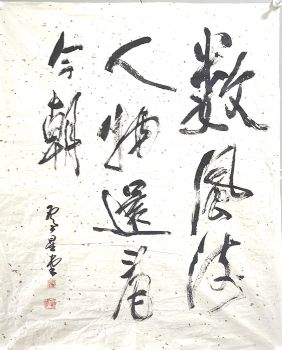 数风流
人物還看
今朝